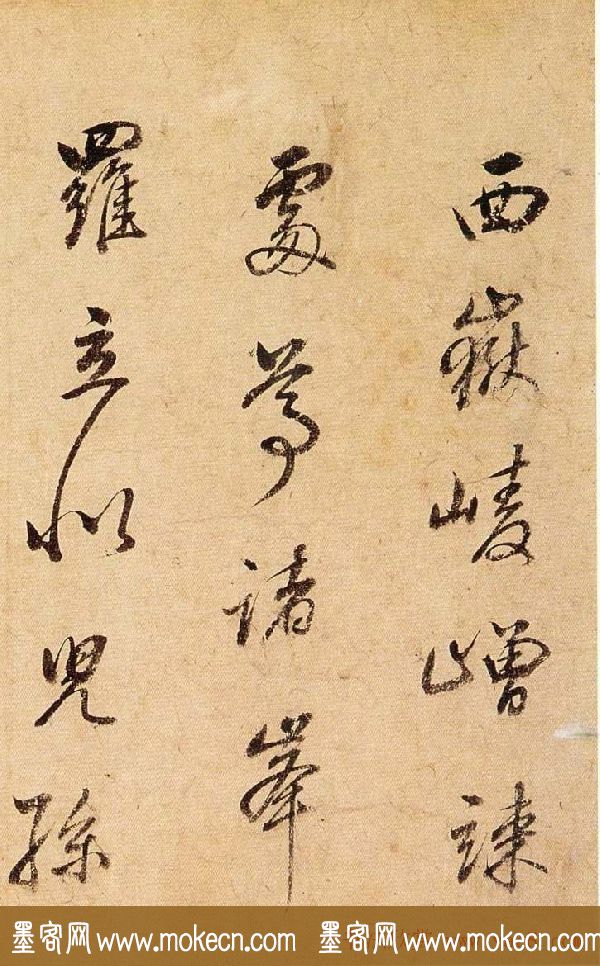 西嶽崚嶒竦
處尊諸峯
羅立似兒孫
墨客网 www.mokecn.com 墨客网 www.mokecn.com